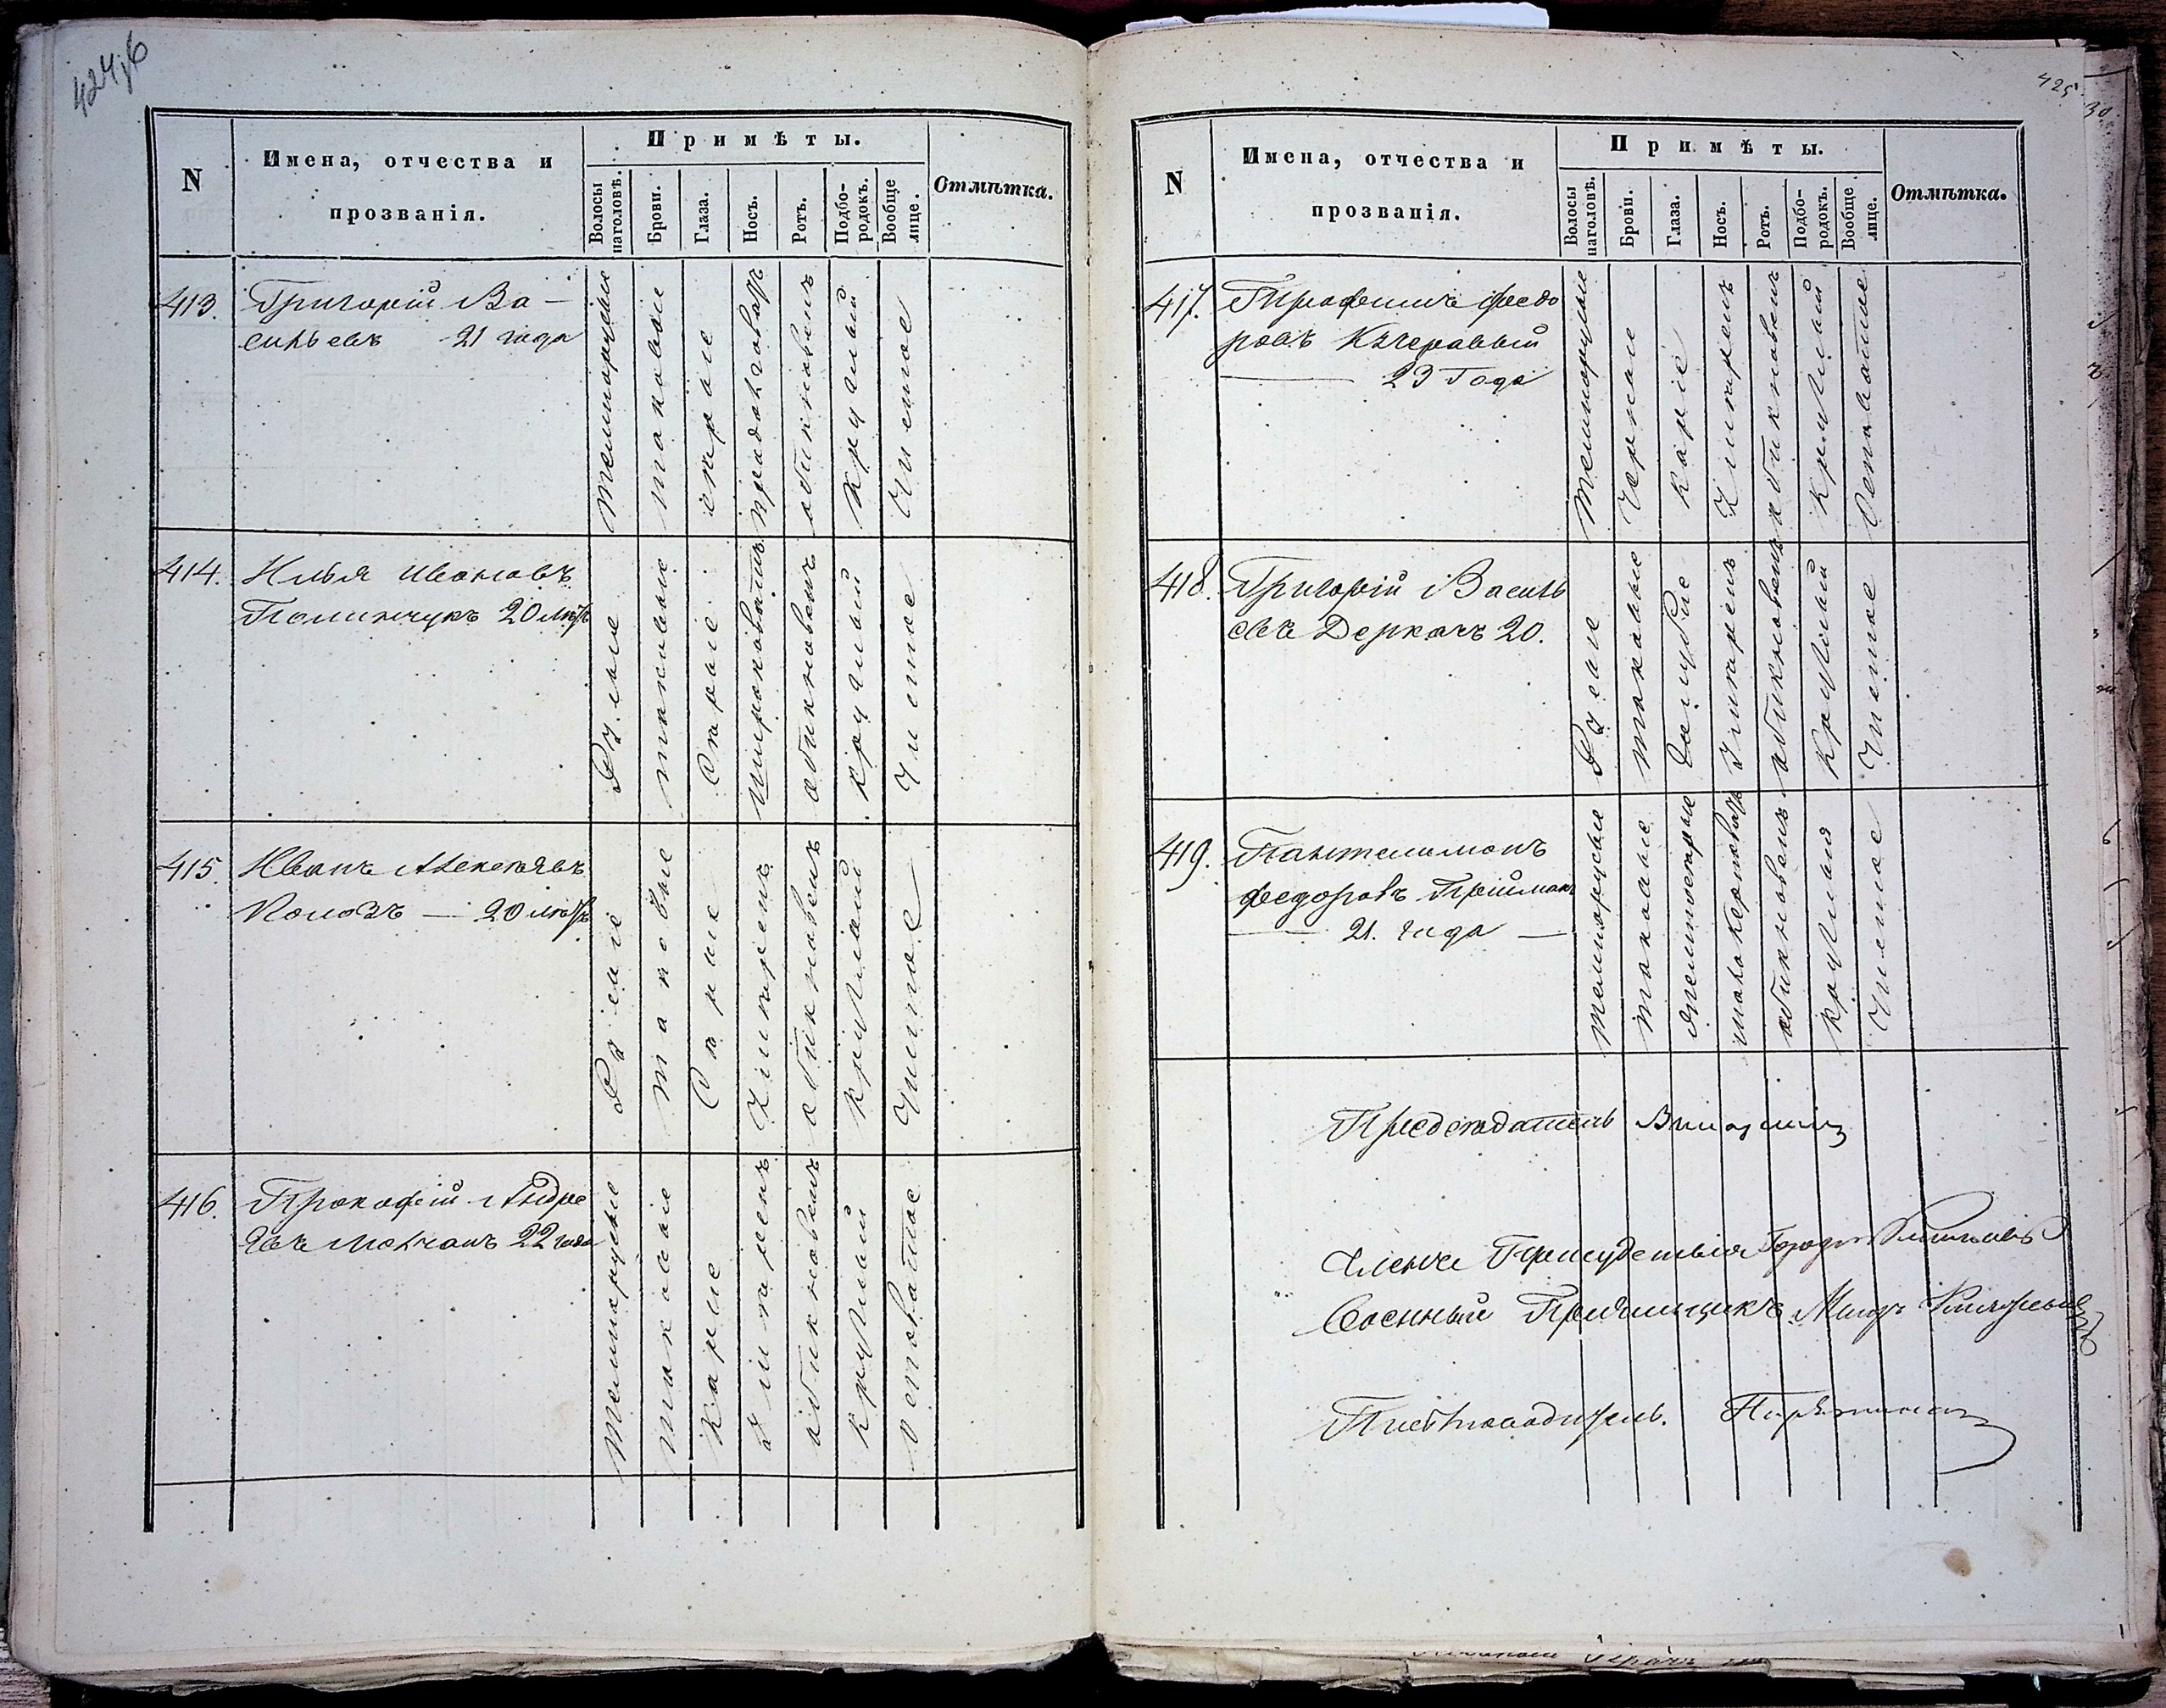 424 об
N
Имена, отчества и
прозванія.
Примѣты.
Волосы
наголовѣ.
Брови.
Глаза.
Носъ.
Ротъ.
Подбо-
родокъ.
Вообще
лице.
Отмѣтка.
413.
Григорій Ва-
сильевъ 21 года
темнорусые
таковые
сѣрые
продолговатъ
обикновенъ
круглый
Чистое
414.
Илья Ивановъ
Полищукъ 20 лѣтъ
Русые
таковые
Сѣрые
Широковатъ
обикновенъ
круглый
Чистое
415.
Иванъ Алексѣевъ
20 лѣтъ
Русые
таковые
Сѣрые
Умѣренъ
обикновенъ
круглый
Чистое
416.
Прокофій Андре
евъ Молчанъ 22 года
Темнорусые
таковые
Каріе
Умѣренъ
обикновенъ
круглый
Осповатое
425
N
Имена, отчества и
прозванія.
Примѣты.
Волосы
наголовѣ.
Брови.
Глаза.
Носъ.
Ротъ.
Подбо-
родокъ.
Вообще
лице.
Отмѣтка.
417.
Трофимъ Федо
ровъ Кучеравый
23 Года
Темнорусые
Черные
каріе
Умѣренъ
обикновенъ
круглый
Осповатое
418.
Григорій Василь
евъ Деркачъ 20.
Русые
таковые
Голубые
Умѣренъ
обикновенъ
круглый
Чистое
419.
Пантелимонъ
Федоровъ Пріймакъ
21. года
темнорусые
таковые
обикновенъ
круглый
Чистое
Предсѣдатель
Члены Присудствія
Военный Пріемщикъ